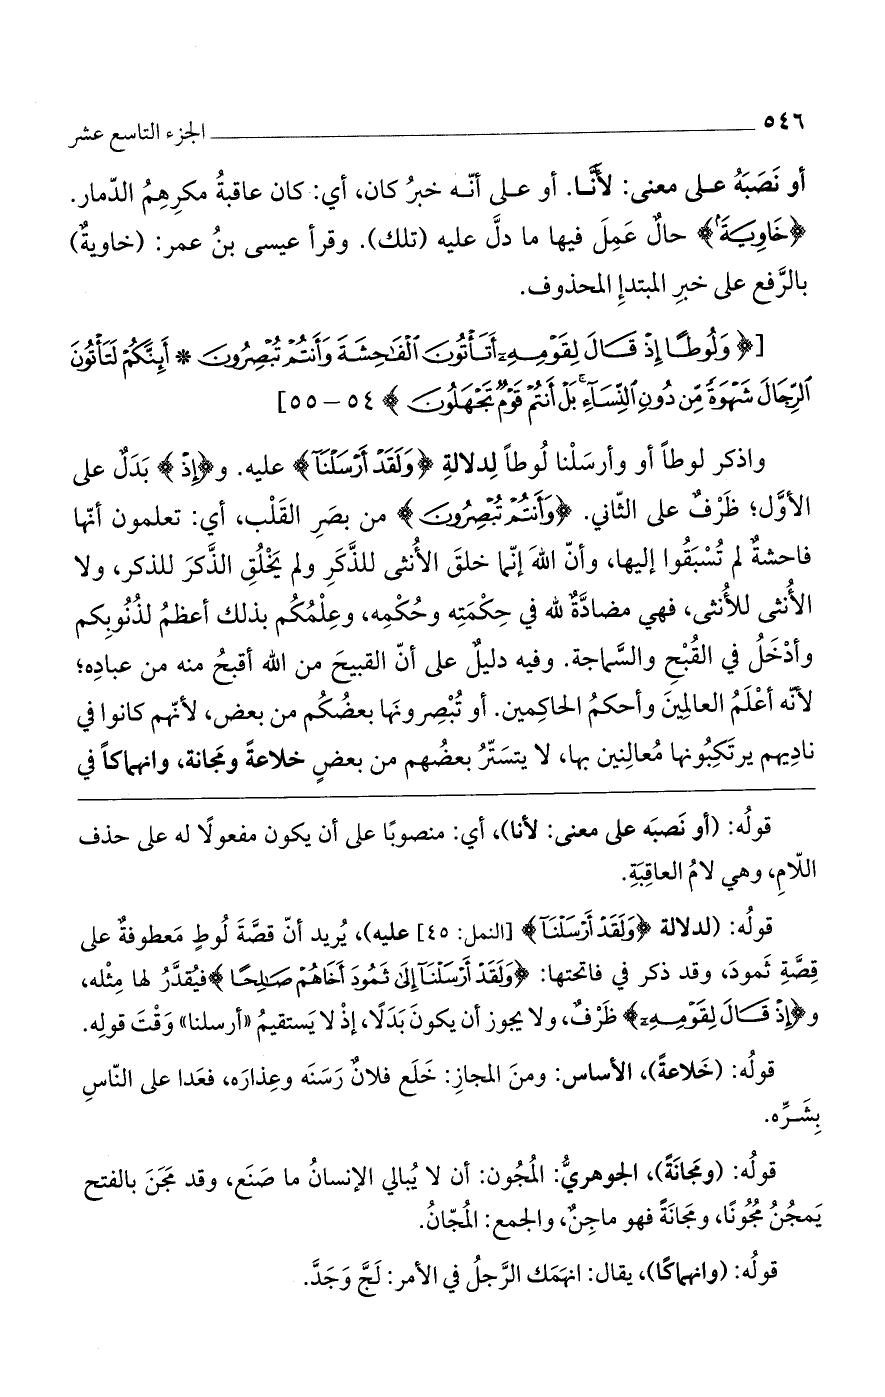 ٥٤٦ الجزء التاسع عشر
أو نَصَبَهُ على معنى: لأَنَّا. أو على أنّه خبرُ كان، أي: كان عاقبةُ مكرِهِمُ الدّمار.
﴿خَاوِيَةً﴾ حالٌ عَمِلَ فيها ما دلَّ عليه (تلك). وقرأ عيسى بنُ عمر: (خاويةٌ)
بالرَّفع على خبرِ المبتدإِ المحذوف.
[﴿وَلُوطًا إِذْ قَالَ لِقَوْمِهِۦٓ أَتَأْتُونَ ٱلْفَٰحِشَةَ وَأَنتُمْ تُبْصِرُونَ * أَئِنَّكُمْ لَتَأْتُونَ
ٱلرِّجَالَ شَهْوَةً مِّن دُونِ ٱلنِّسَآءِ ۚ بَلْ أَنتُمْ قَوْمٌ تَجْهَلُونَ﴾ ٥٤ – ٥٥]
واذكر لوطاً أو وأرسَلْنا لُوطاً لِدلالةِ ﴿وَلَقَدْ أَرْسَلْنَآ﴾ عليه. و﴿إِذْ﴾ بَدَلٌ على
الأوَّل؛ ظَرْفٌ على الثّاني. ﴿وَأَنتُمْ تُبْصِرُونَ﴾ من بصَرِ القَلْب، أي: تعلمون أنّها
فاحشةٌ لم تُسْبَقُوا إليها، وأنّ اللهَ إنّما خلقَ الأُنثى للذَّكَرِ ولم يَخْلُقِ الذَّكرَ للذكر، ولا
الأُنثى للأُنثى، فهي مضادَّةٌ لله في حِكْمَتِه وحُكْمِه، وعِلْمُكُم بذلك أعظمُ لذُنُوبِكم
وأدْخَلُ في القُبْحِ والسَّماجة. وفيه دليلٌ على أنّ القبيحَ من الله أقبحُ منه من عبادِه؛
لأنّه أعْلَمُ العالمِينَ وأحكمُ الحاكِمين. أو تُبْصِرونَها بعضُكُم من بعض، لأنّهم كانوا في
نادِيهم يرتَكِبُونها مُعالِنين بها، لا يتستَّرُ بعضُهم من بعضٍ خلاعةً ومَجانة، وانهماكاً في
قولُه: (أو نَصبَه على معنى: لأنا)، أي: منصوبًا على أن يكون مفعولًا له على حذف
اللّامِ، وهي لامُ العاقِبَةِ.
قولُه: (لدلالة ﴿وَلَقَدْ أَرْسَلْنَآ﴾ [النمل: ٤٥] عليه)، يُريد أنّ قصَّةَ لُوطٍ مَعطوفةٌ على
قِصَّةِ ثَمودَ، وقد ذكر في فاتحتها: ﴿وَلَقَدْ أَرْسَلْنَآ إِلَىٰ ثَمُودَ أَخَاهُمْ صَٰلِحًا﴾ فيُقدَّرُ لها مِثْله،
و﴿إِذْ قَالَ لِقَوْمِهِۦٓ﴾ ظَرْفٌ، ولا يجوز أن يكونَ بَدَلًا، إذْ لا يَستقيمُ «أرسلنا» وَقْتَ قولِه.
قولُه: (خَلاعةً)، الأساس: ومنَ المجازِ: خَلَع فلانٌ رَسَنَه وعِذارَه، فعَدا على النّاسِ
بِشَرِّه.
قولُه: (ومَجانَةً)، الجوهريُّ: المُجُون: أن لا يُبالي الإنسانُ ما صَنَع، وقد مَجَنَ بالفتح
يَمجُنُ مُجُونًا، ومَجانَةً فهو ماجِنٌ، والجمع: المُجّانُ.
قولُه: (وانهماكًا)، يقال: انهمَك الرَّجلُ في الأمر: لَجَّ وَجَدَّ.